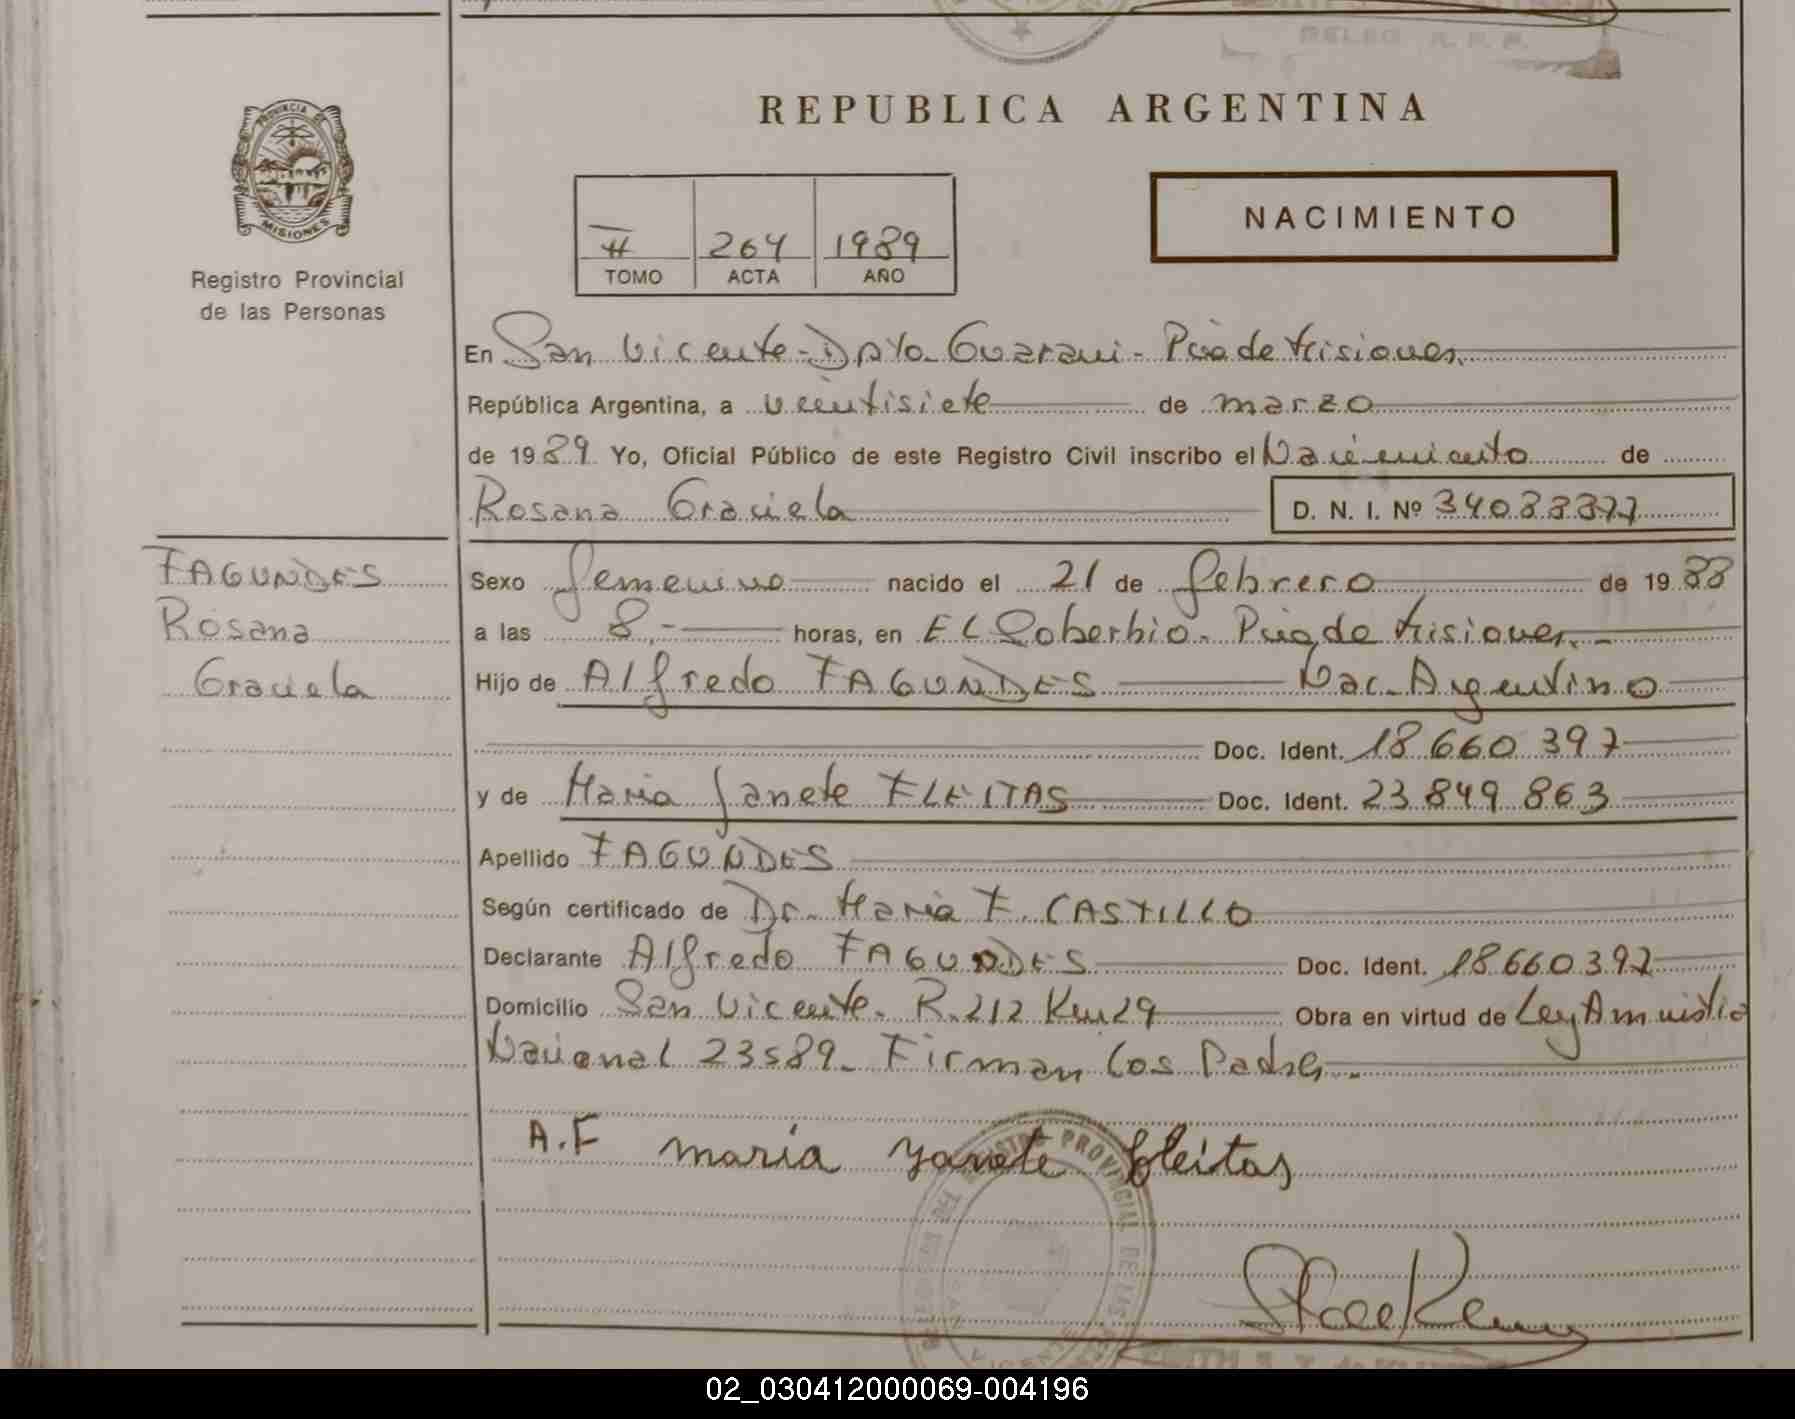 DELEG. R. P. P.
REPUBLICA ARGENTINA
PROVINCIA DE
MISIONES
Registro Provincial
de las Personas
II 264 1989
TOMO ACTA AÑO
NACIMIENTO
En San Vicente - Dpto Guarani - Pcia de Misiones.
República Argentina, a veintisiete de marzo
de 1989. Yo, Oficial Público de este Registro Civil inscribo el Nacimiento de
Rosana Graciela D. N. I. Nº 34088377
FAGUNDES
Rosana
Graciela
Sexo femenino nacido el 21 de febrero de 1988
a las 8.- horas, en EL Soberbio. Pcia de Misiones.-
Hijo de Alfredo FAGUNDES Nac. Argentino
Doc. Ident. 18 660 397
y de Maria Janete FLEITAS Doc. Ident. 23 849 863
Apellido FAGUNDES
Según certificado de Dr. Maria F. CASTILLO
Declarante Alfredo FAGUNDES Doc. Ident. 18660397
Domicilio San Vicente. R. 212 Km 29 Obra en virtud de Ley Amnistia
Nacional 23589. Firman los Padres.
A.F maría yanete fleitas
REGISTRO PROVINCIAL DE LAS
02_030412000069-004196